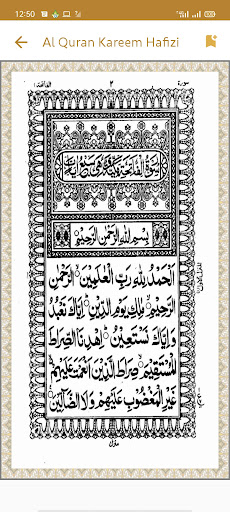 12:50
Al Quran Kareem Hafizi
سورة ٢ الفاتحة ١
سورة الفاتحة مكية وهي سبع ايات
بِسْمِ اللهِ الرَّحْمٰنِ الرَّحِيْمِ
اَلْحَمْدُ لِلّٰهِ رَبِّ الْعٰلَمِيْنَ ۙ الرَّحْمٰنِ
الرَّحِيْمِ ۙ مٰلِكِ يَوْمِ الدِّيْنِ ؕ اِيَّاكَ نَعْبُدُ
وَاِيَّاكَ نَسْتَعِيْنُ ؕ اِهْدِنَا الصِّرَاطَ
الْمُسْتَقِيْمَ ۙ صِرَاطَ الَّذِيْنَ اَنْعَمْتَ عَلَيْهِمْ ۙ
غَيْرِ الْمَغْضُوْبِ عَلَيْهِمْ وَلَا الضَّآلِّيْنَ
منزل